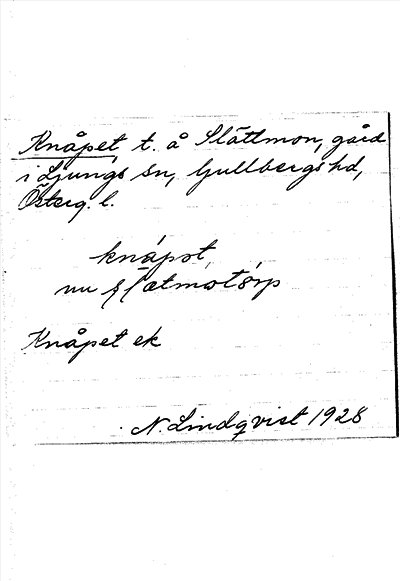 Knåpet, t. å Slättmon, gård
i Ljungs sn, Gullbergs hd,
Österg. l.
knåpət,
nu slätmotôrp
Knåpet ek
N. Lindqvist 1928